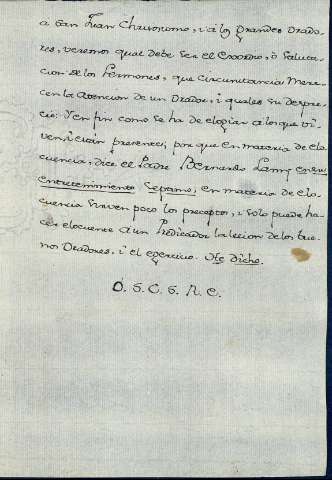 a San Juan Chrisostomo, i a los grandes Orado-
res, veremos qual debe ser el Exordio, o saluta-
cion de los Sermones, que circunstancia mere-
cen la atencion de un Orador, i quales su despre-
cio. I en fin como se ha de elogiar a los que vi-
ven, i estan presentes, por que en materia de elo-
cuencia, dice el Padre Bernardo Lamy en su
entretenimiento septimo, en materia de elo-
cuencia sirven poco los preceptos, i solo puede ha-
cer elocuente a un Predicador la leccion de los bue-
nos Oradores, i el egercicio. He dicho.
O. S. C. S. R. E.